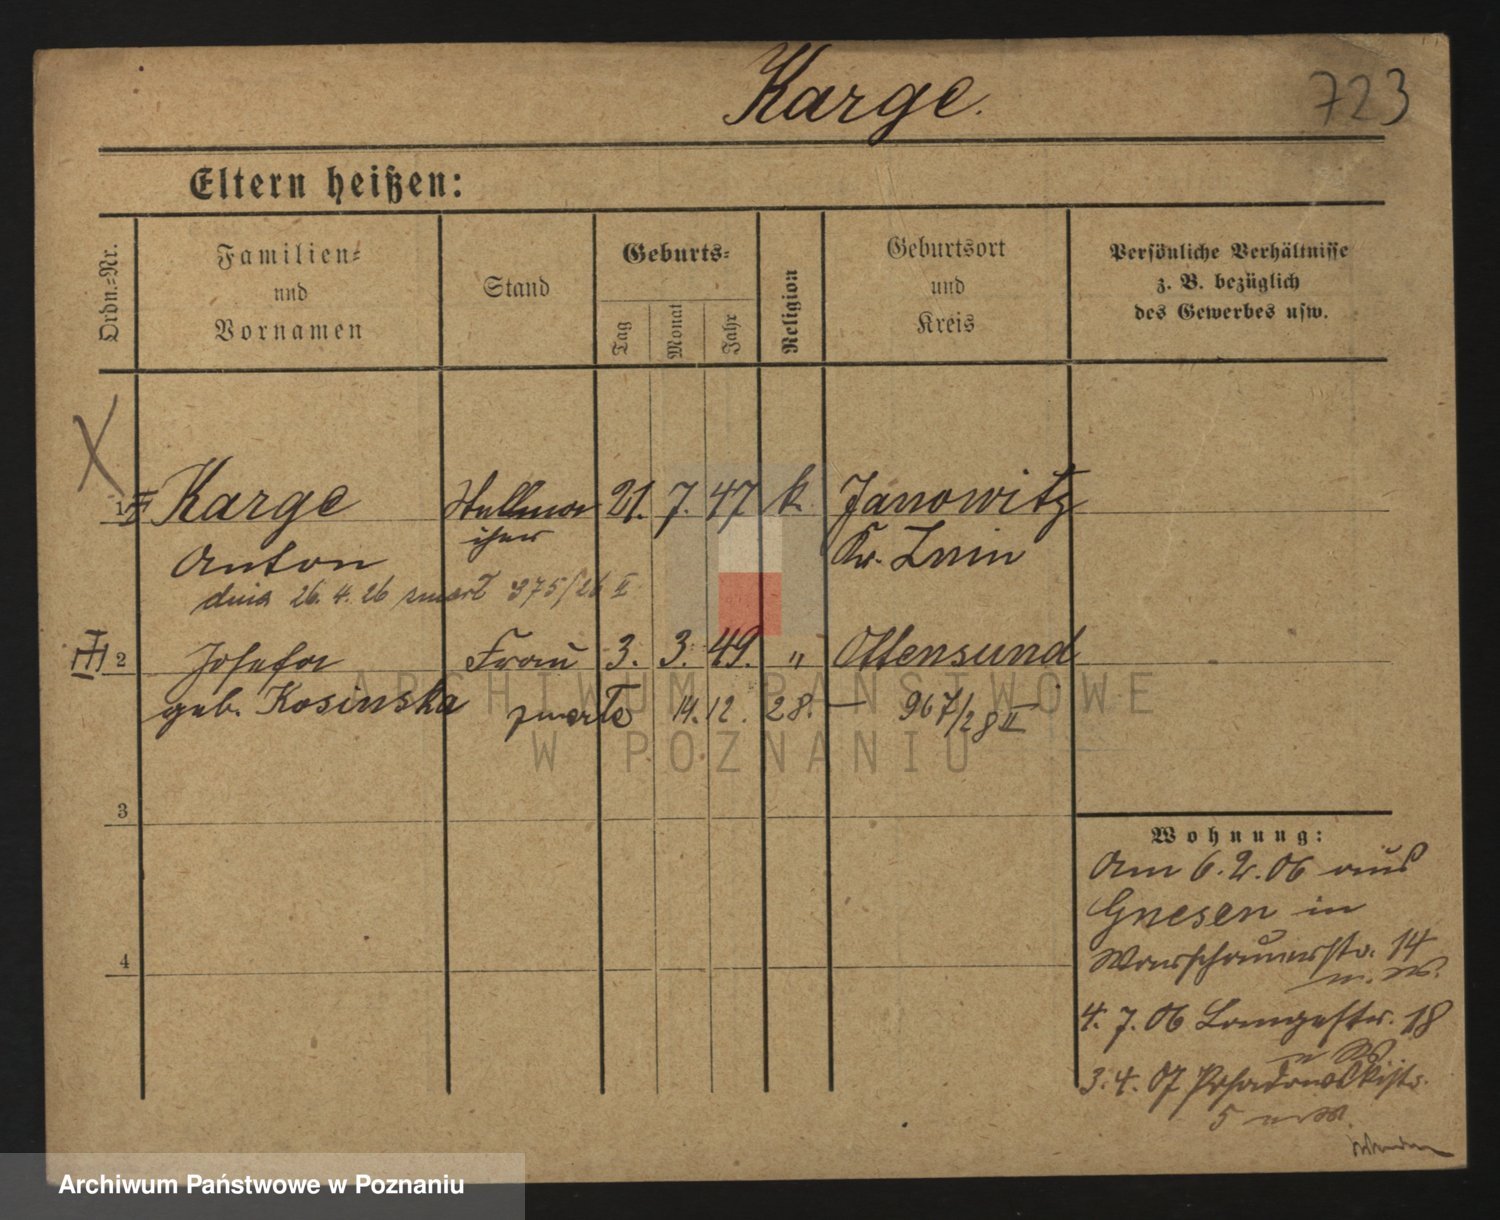 Karge.
723
Eltern heißen:
Ordn.-Nr.
Familien-
und
Vornamen
Stand
Geburts-
Tag
Monat
Jahr
Religion
Geburtsort
und
Kreis
Persönliche Verhältnisse
z. B. bezüglich
des Gewerbes usw.
1 Karge Stellma 21. 7. 47 k. Janowitz
cher
Anton Kr. Znin
dnia 26. 4. 26 zmarł 375/26 II
2 Josefa Frau 3. 3. 49. " Ottensund
geb. Kosinska zmarła 14. 12. 28. — 967/28 II
3
4
Wohnung:
Am 6. 2. 06 aus
Gnesen in
Warschauerstr. 14
4. 7. 06 Langestr. 18
3. 4. 07 Posadowskistr.
5
ARCHIWUM PAŃSTWOWE
W POZNANIU
Archiwum Państwowe w Poznaniu